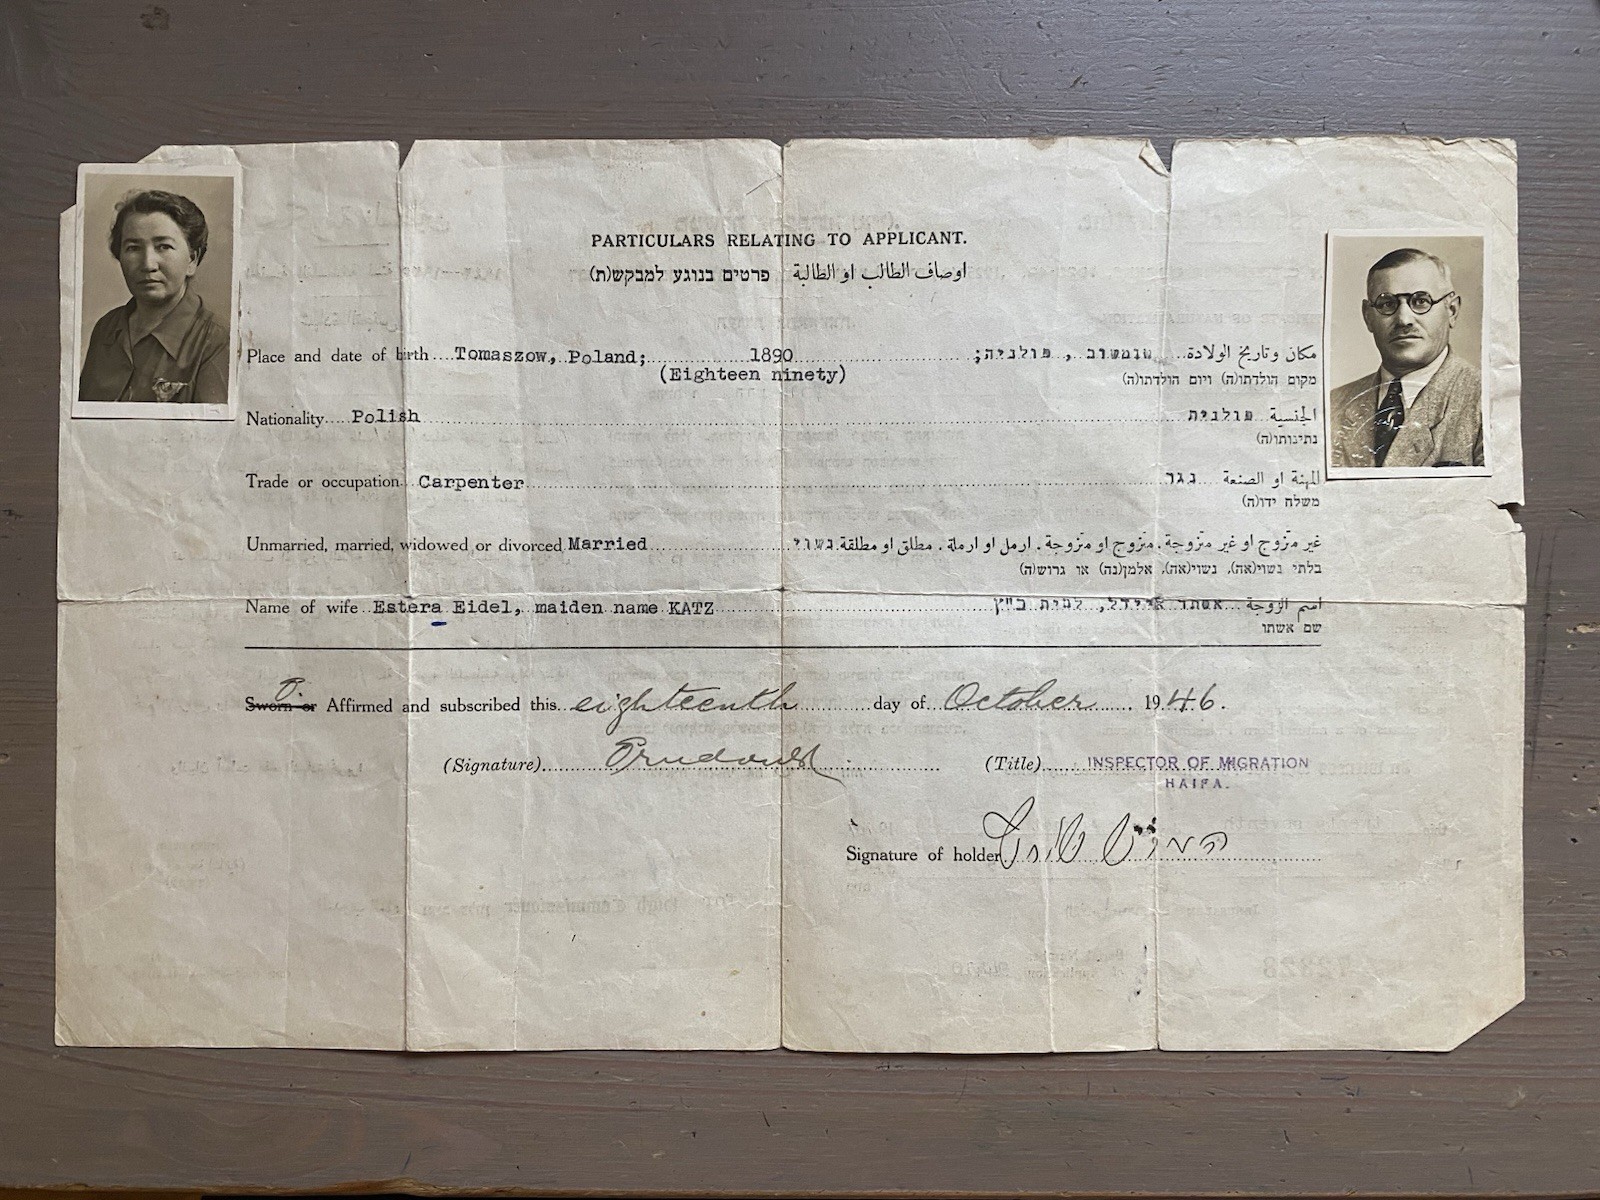 PARTICULARS RELATING TO APPLICANT.
פרטים בנוגע למבקש(ת) اوصاف الطالب او الطالبة
Place and date of birth...Tomaszow, Poland; 1890 טומשוב, פולניה; مكان وتاريخ الولادة
(Eighteen ninety) מקום הולדתו(ה) ויום הולדתו(ה)
Nationality...Polish פולנית الجنسية
נתינותו(ה)
Trade or occupation...Carpenter נגר المهنة او الصنعة
משלח ידו(ה)
Unmarried, married, widowed or divorced Married נשוי غير متزوج او غير متزوجة. متزوج او متزوجة. ارمل او ارملة. مطلق او مطلقة.
בלתי נשוי(אה), נשוי(אה), אלמן(נה) או גרוש(ה)
Name of wife...Estera Eidel, maiden name KATZ אסתר איידל, לבית כ"ץ اسم الزوجة
שם אשתו
Sworn or Affirmed and subscribed this eighteenth day of October 1946.
(Signature) (Title) INSPECTOR OF MIGRATION
HAIFA.
Signature of holder